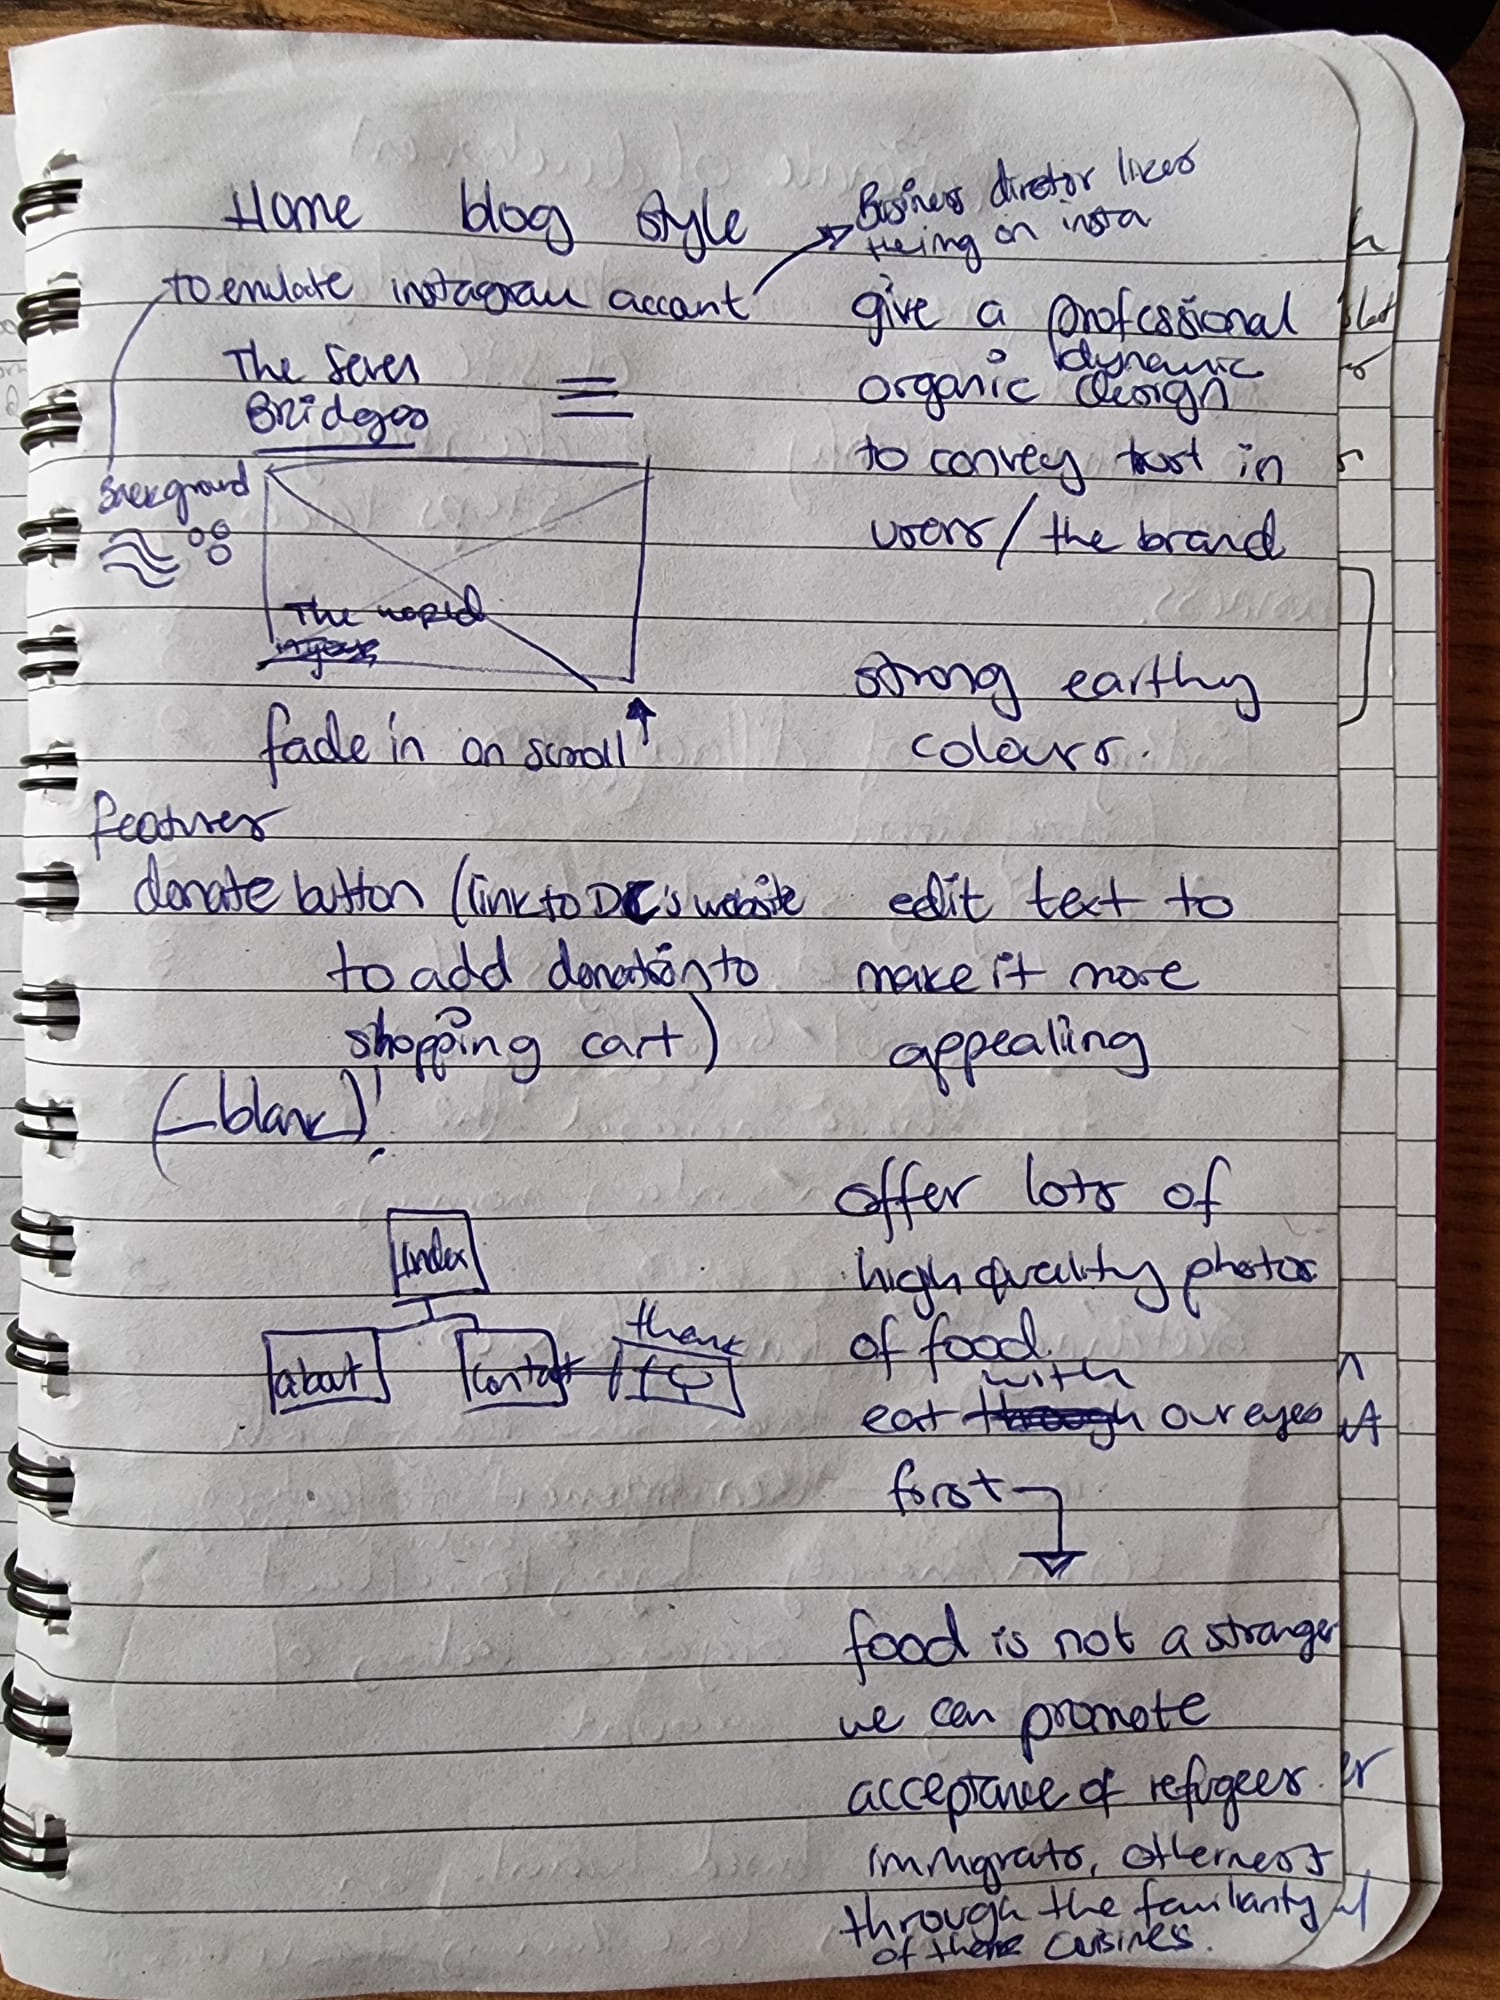 Home blog style
to emulate instagram account
Business diretor likes
being on insta
The Seven
Bridges
Background
The world
fade in on scroll
features
donate button (link to DC's website
to add donation to
shopping cart)
(_blank)!
index
about
contact
thank
give a professional
dynamic
organic design
to convey trust in
users/the brand
strong earthy
colours.
edit text to
make it more
appealing
offer lots of
high quality photos
of food.
with
eat through our eyes
first
food is not a stranger
we can promote
acceptance of refugees.
immigrats, otherness
through the familiarity
of there cuisines.